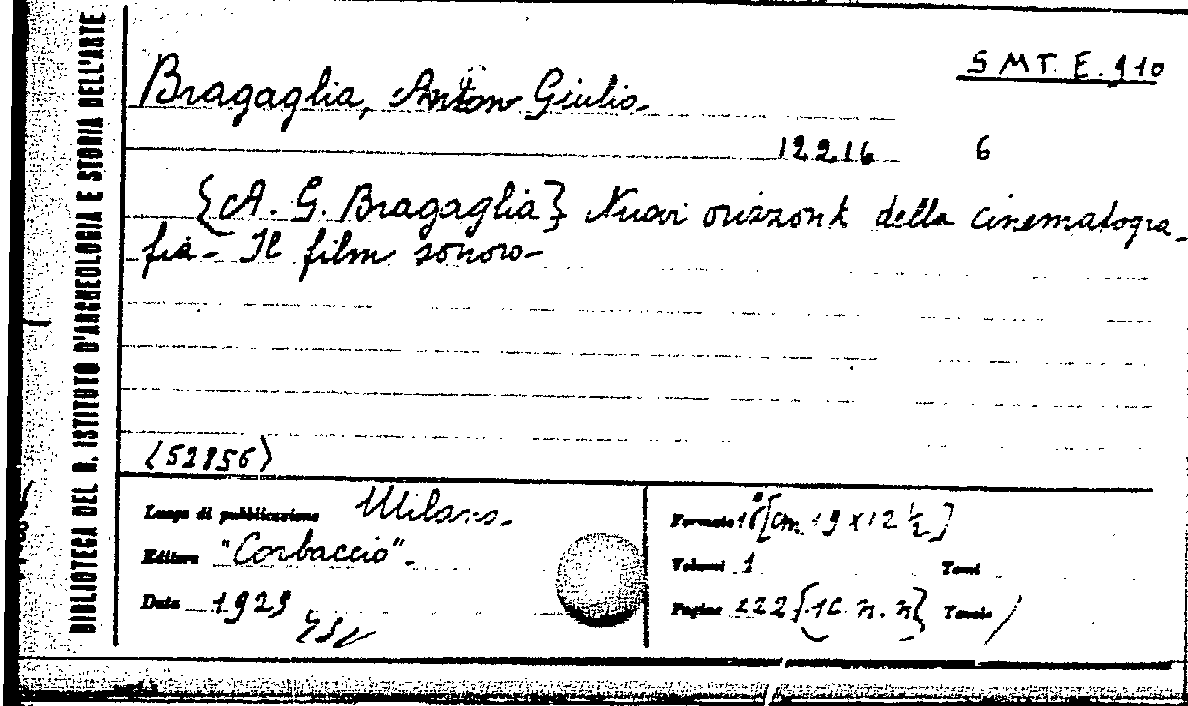 BIBLIOTECA DEL R. ISTITUTO D'ARCHEOLOGIA E STORIA DELL'ARTE
SMT. E. 910
Bragaglia, Anton Giulio
12216 6
{A. G. Bragaglia} Nuovi orizzonti della cinematogra-
fia - Il film sonoro -
(52856)
Luogo di pubblicazione Milano.
Editore "Corbaccio".
Data 1929
Formato 16° [cm 19 x 12 ½]
Volumi 1 Tomi
Pagine 222 {10 n. n} Tavole /